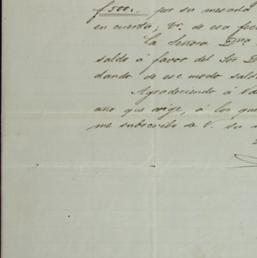 £500.. por su mesada
en cuenta, V. de esa fec
La Señora Dna
saldo á favor del Sor D
dando de ese modo sald
Agradeciendo á Vd
año que rige, á los que
me subscribo de V. su a